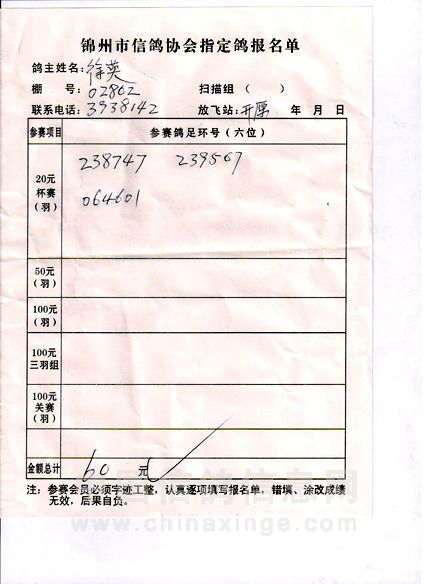 锦州市信鸽协会指定鸽报名单
鸽主姓名：徐英
棚 号：02862 扫描组（ ）
联系电话：3938142 放飞站：开原 年 月 日
参赛项目 参赛鸽足环号（六位）
20元
杯赛
（羽）
238747 239567
064601
50元
（羽）
100元
（羽）
100元
三羽组
100元
关赛
（羽）
金额总计 60 元
注：参赛会员必须字迹工整，认真逐项填写报名单，错填、涂改成绩
无效，后果自负。
中国信鸽信息网
www.chinaxinge.com